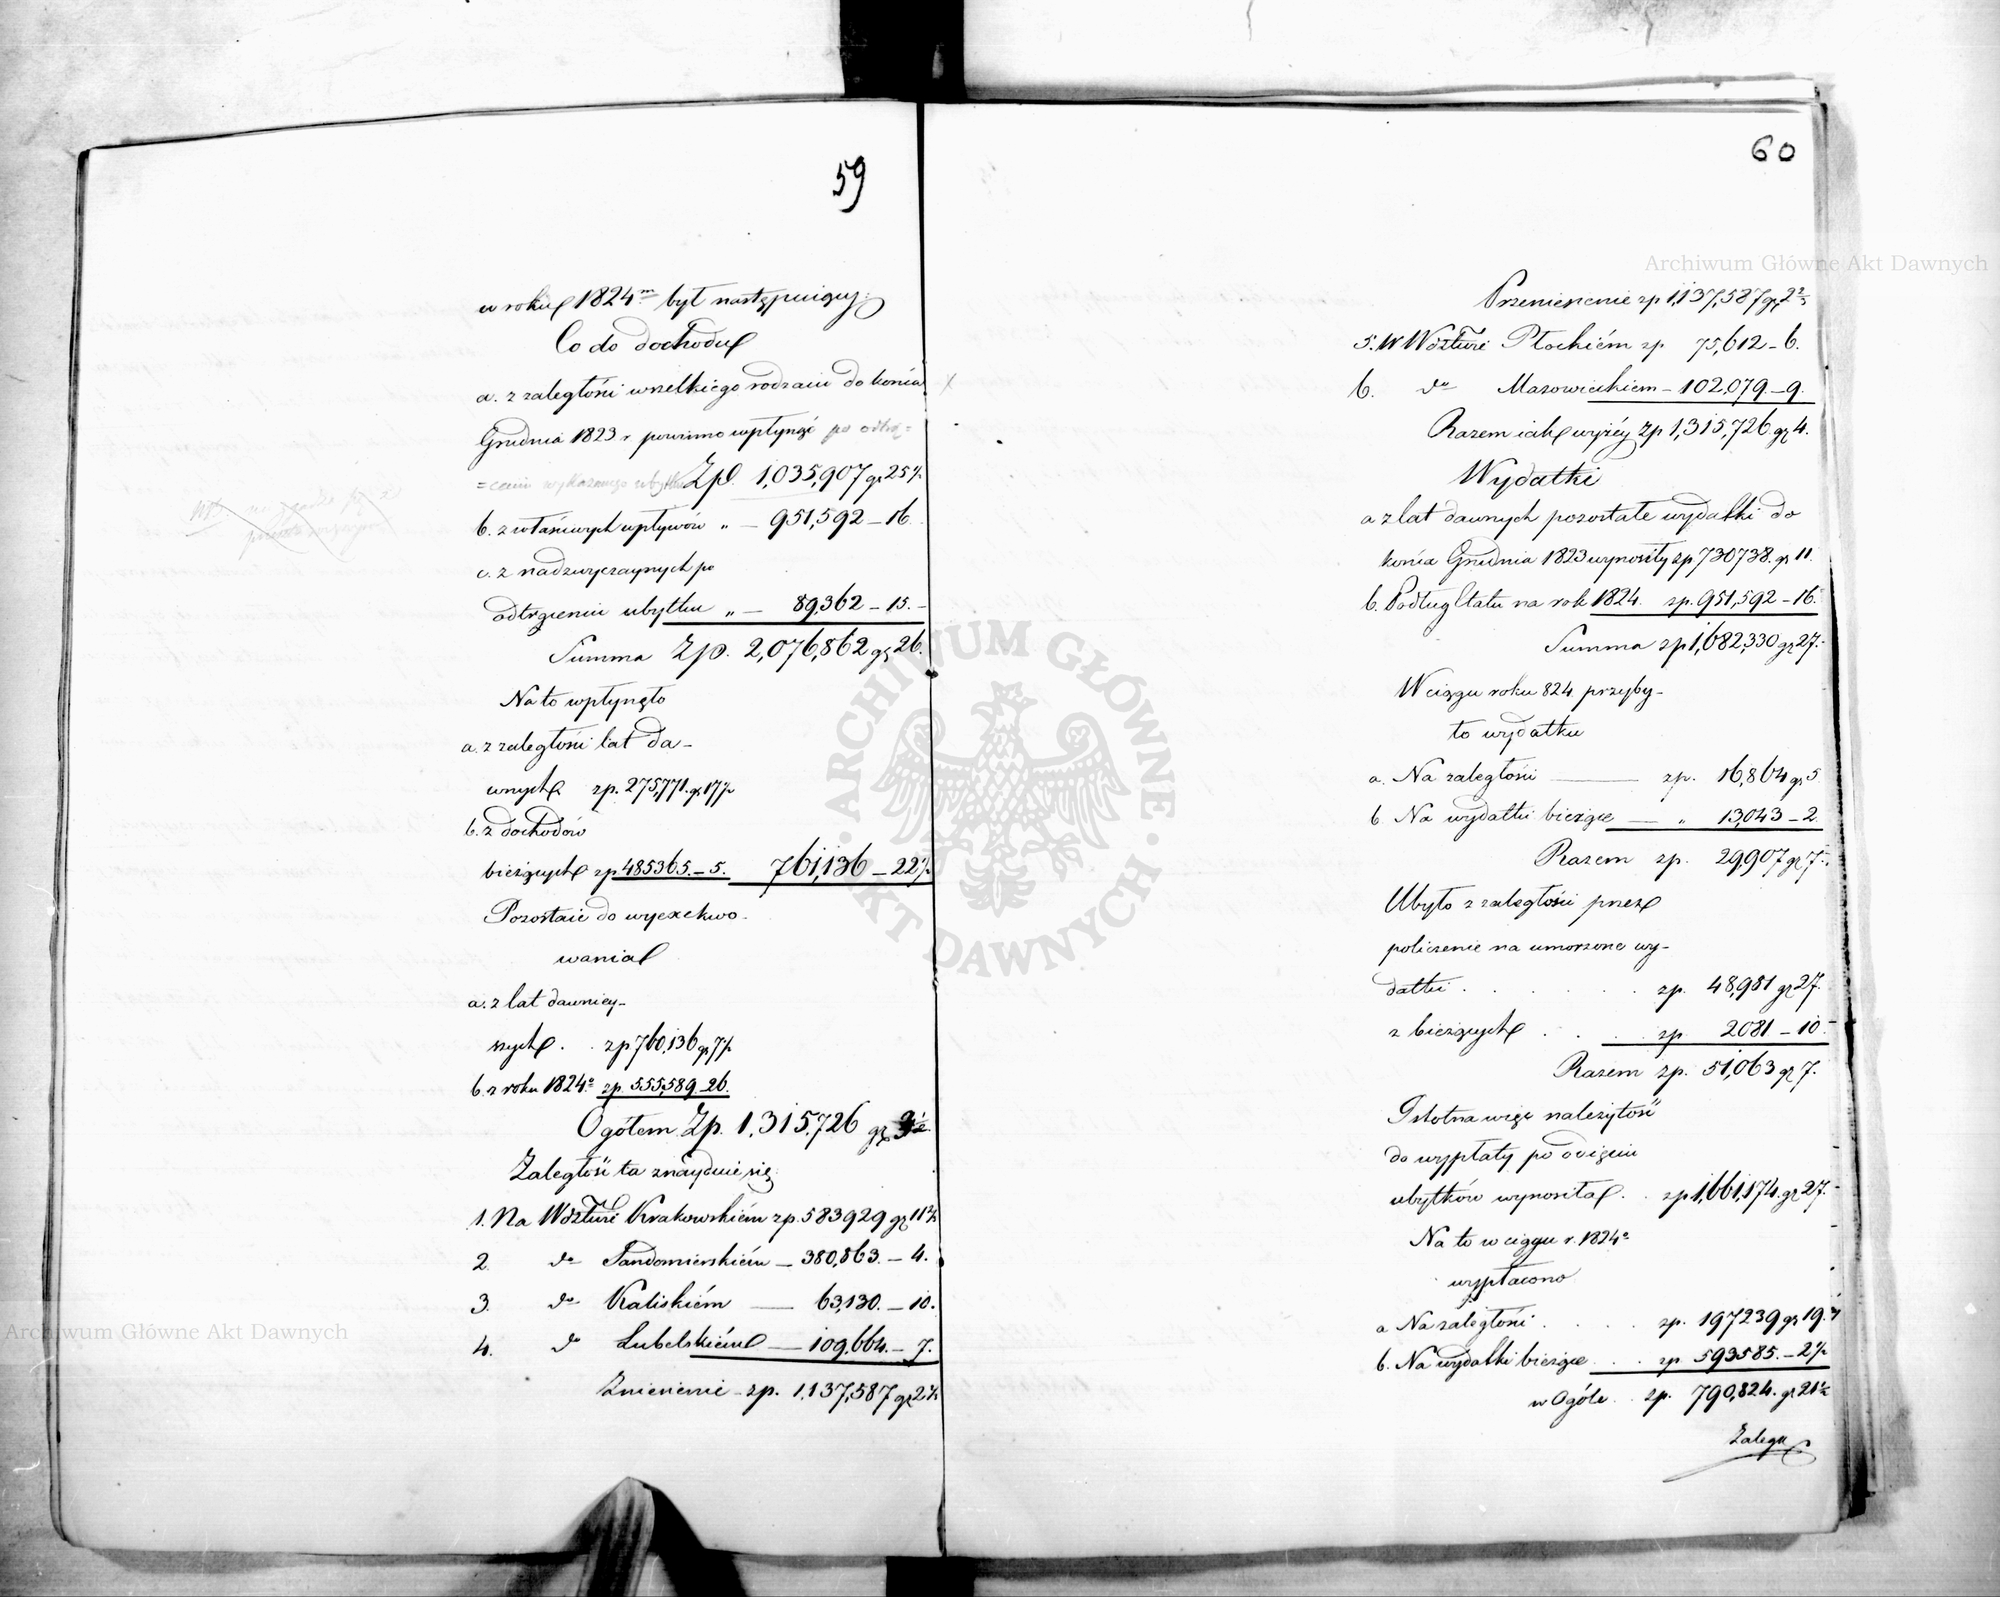 59
w roku 1824m był następuiący:
Co do dochodu
a. z zaległości wszelkiego rodzaiu do końca
Grudnia 1823 r powinno wpłynąć po odtrą=
=ceniu wykazanego ubytku Zpł. 1,035,907 gr 25 ½
b. z właściwych wpływów „ — 951,592 — 16.
c. z nadzwyczaynych po
odtrąceniu ubytku „ — 89,362 — 15. —
Summa Zp. 2,076,862 gr 26.
Na to wpłynęło
a. z zaległości lat da-
wnych zp. 275,771. gr 17 ½
b. z dochodów
bieżących zp 485365. — 5. 761,136 — 22 ½
Pozostaie do wyexekwo-
wania
a. z lat dawniey-
szych . . zp 760,136 gr 7 ½
b. z roku 1824o zp. 555,589 — 26.
Ogółem Zp. 1,315,726 gr 3 ½.
Zaległość ta znayduie się:
1. Na Wdztwie Krakowskiém zp. 583929 gr 11 ½
2. do Sandomierskiém — 380,863. — 4.
3. do Kaliskiém — 63,130. — 10.
4. do Lubelskiém — 109,664. — 7.
Zniesienie — zp. 1,137,587 gr 2 ½
60
Przeniesienie zp 1,137,587 gr 2 ½
5. W Wdztwie Płockiém zp. 75,612 — 6.
6. do Mazowieckiem — 102,079. — 9.
Razem iak wyżéy Zp 1,315,726 gr 4.
Wydatki
a z lat dawnych pozostałe wydatki do
końca Grudnia 1823 wynosiły zp 730738. gr 11.
b. Podług Etatu na rok 1824. zp. 951,592 — 16.
Summa zp 1,682,330 gr 27.
W ciągu roku 824. przyby-
ło wydatku
a. Na zaległości — zp. 16,864 gr 5
b. Na wydatki bieżące — „ 13,043 — 2.
Razem zp. 29,907 gr 7.
Ubyło z zaległości przez
policzenie na umorzone wy-
datki . . . . . zp. 48,981 gr 27.
z bieżących . . . zp 2081 — 10.
Razem zp. 51,063 gr 7.
Istotna więc należytość
do wypłaty po odięciu
ubytków wynosiła . . zp 1,661,174. gr 27.
Na to w ciągu r. 1824o
wypłacono
a Na zaległości . . . . zp. 197239 gr 19.
b. Na wydatki bieżące . . . zp 593585. — 2 ½
w Ogóle . . zp. 790,824. gr 21 ½
Zalega
Archiwum Główne Akt Dawnych
Archiwum Główne Akt Dawnych
ARCHIWUM GŁÓWNE · AKT DAWNYCH ·